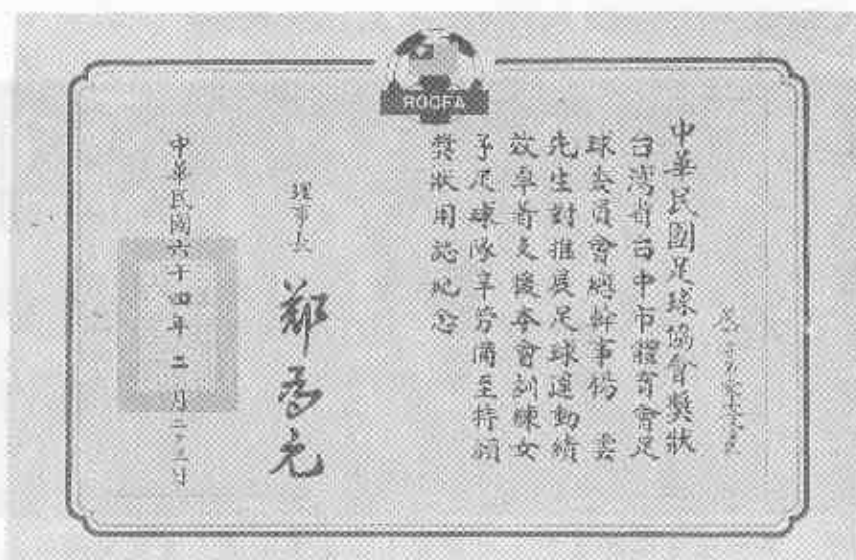 ROCFA
中華民國足球協會獎狀
台灣省台中市體育會足
球委員會總幹事楊 雲
先生對推展足球運動績
效卓著支援本會訓練女
子足球隊辛勞備至特頒
獎狀用誌紀念
理事長
鄭為元
中華民國六十四年二月二十三日